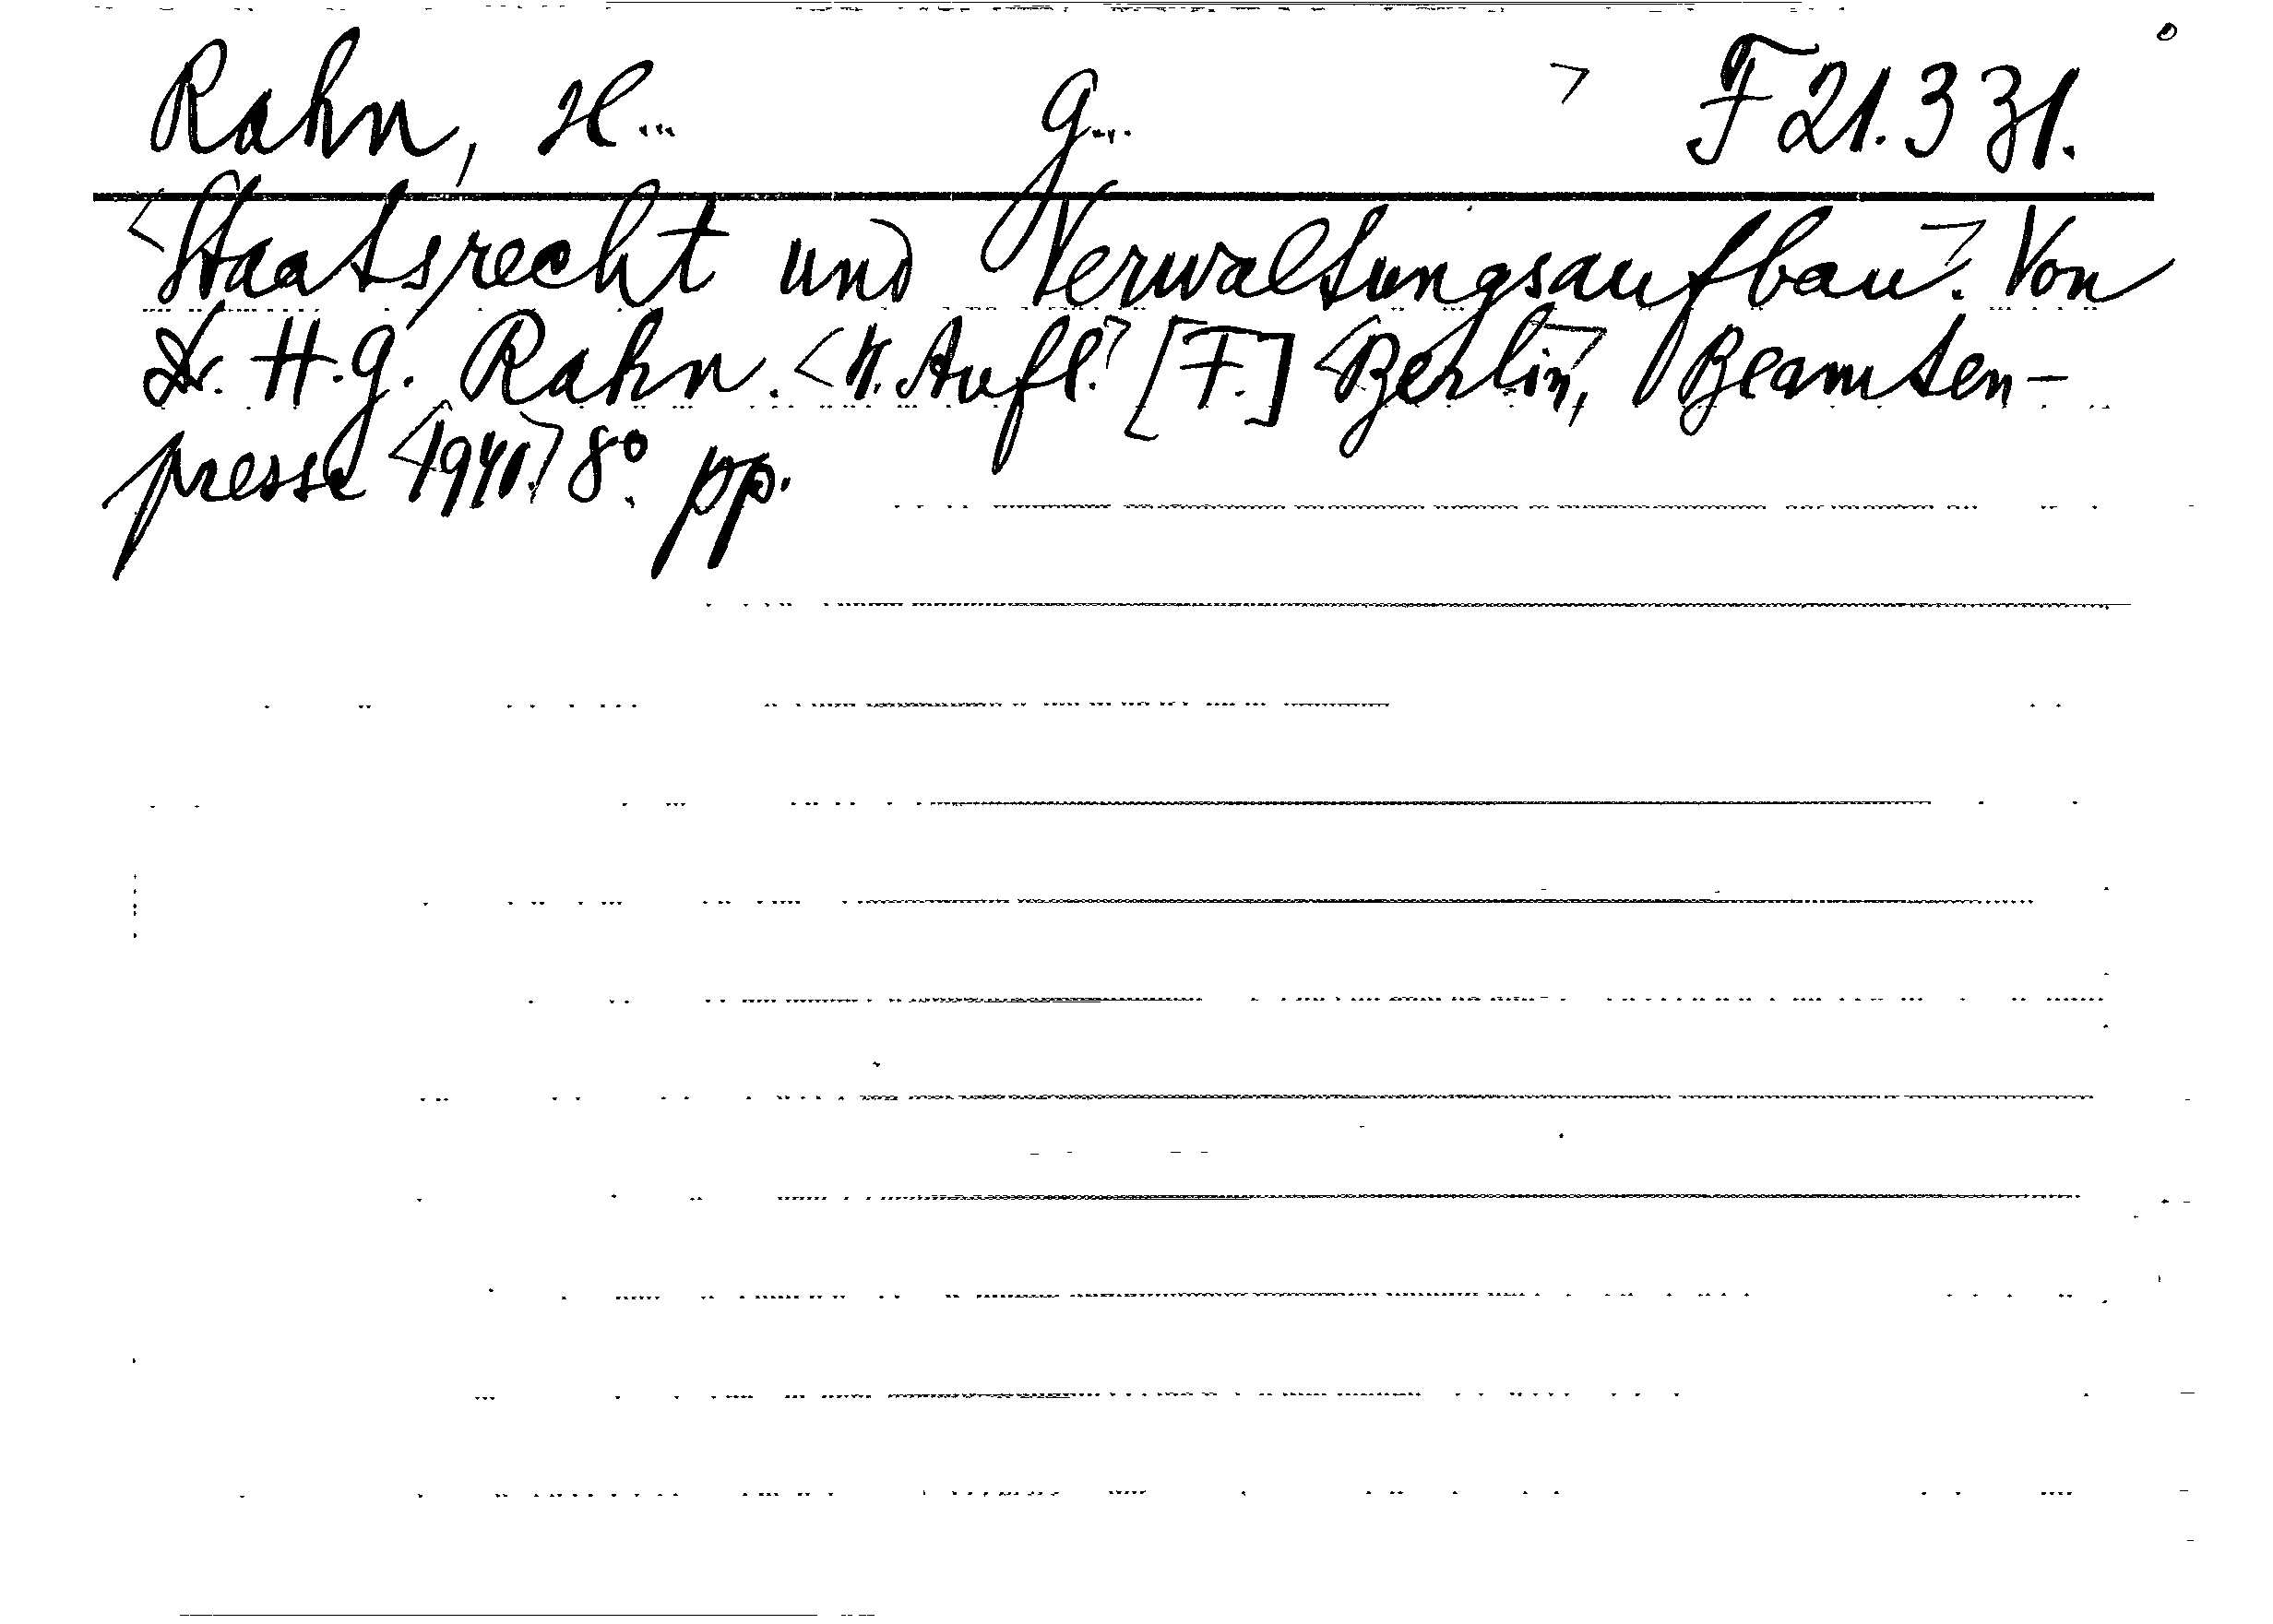 Rahn, H... G... > F 21.331.
<Staatsrecht und Verwaltungsaufbau>. Von
Dr. H. G. Rahn. <4. Aufl.> [F.] <Berlin>, Beamten-
presse <1940.> 8°. pp.